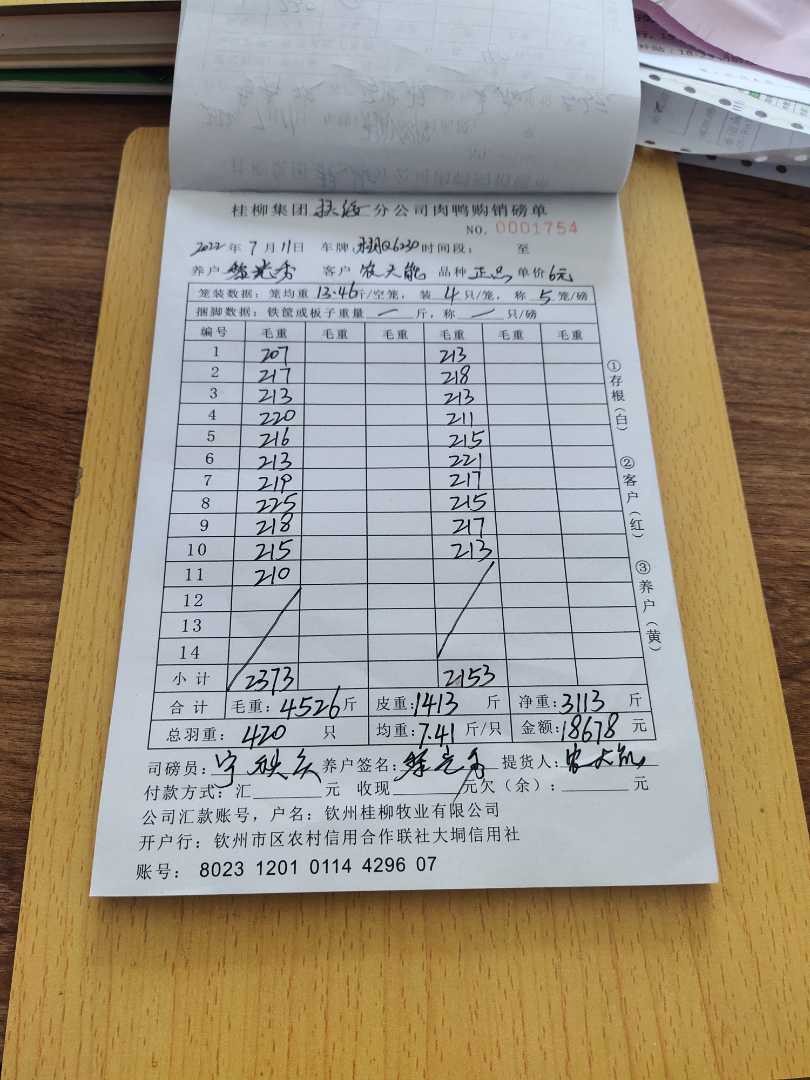 桂柳集团 扶绥 分公司肉鸭购销磅单
NO. 0001754
2022年 7 月 11日 车牌 Q6230 时间段: 至
养户 客户 农大能 品种 正品 单价 6元
笼装数据: 笼均重 13.46斤/空笼, 装 4 只/笼, 称 5 笼/磅
捆脚数据: 铁筐或板子重量 — 斤, 称 — 只/磅
编号 毛重 毛重 毛重 毛重 毛重 毛重
1 207 213
2 217 218
3 213 213
4 220 211
5 216 215
6 213 221
7 219 217
8 225 215
9 218 217
10 215 213
11 210
12
13
14
小计 2373 2153
合计 毛重: 4526 斤 皮重: 1413 斤 净重: 3113 斤
总羽重: 420 只 均重: 7.41 斤/只 金额: 18678 元
司磅员: 养户签名: 提货人: 农大能
付款方式: 汇 元 收现 元 欠(余): 元
公司汇款账号, 户名: 钦州桂柳牧业有限公司
开户行: 钦州市区农村信用合作联社大垌信用社
账号: 8023 1201 0114 4296 07
①存根(白)
②客户(红)
③养户(黄)